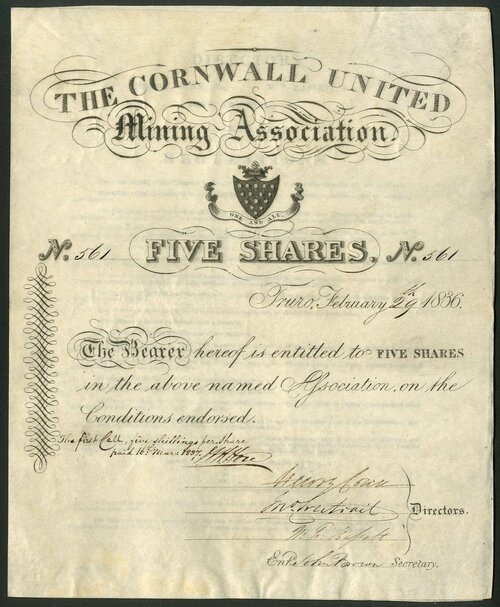 THE CORNWALL UNITED
Mining Association.
ONE AND ALL.
No. 561 FIVE SHARES, No. 561
Truro, February 29th 1836.
The Bearer hereof is entitled to FIVE SHARES
in the above named Association, on the
Conditions endorsed.
The first Call, five shillings per share
paid 16 Mar. 1837.
Directors.
Entd. Secretary.